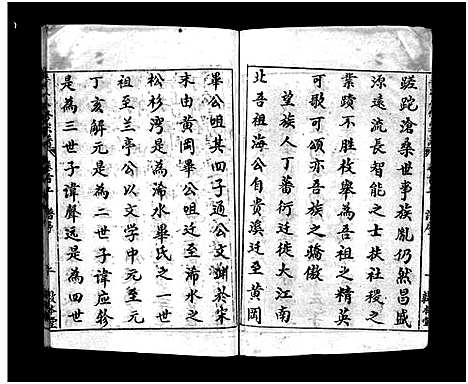 蹉跎滄桑世事族胤仍然昌盛
源遠流長智能之士扶社稷之
業蹟不勝枚舉為吾祖之精英
可歌可頌亦吾族之驕傲
望族人丁蕃衍迁徙大江南
北吾祖海公自贵溪迁至黄岡
畢公咀其四子通公文澍於宋
末由黄岡畢公咀迁至浠水之
松杉湾是為浠水畢氏之一世
祖至兰亭公以文学中元至元
丁亥解元是為二世子諱应軫
是為三世子諱声远是為四世